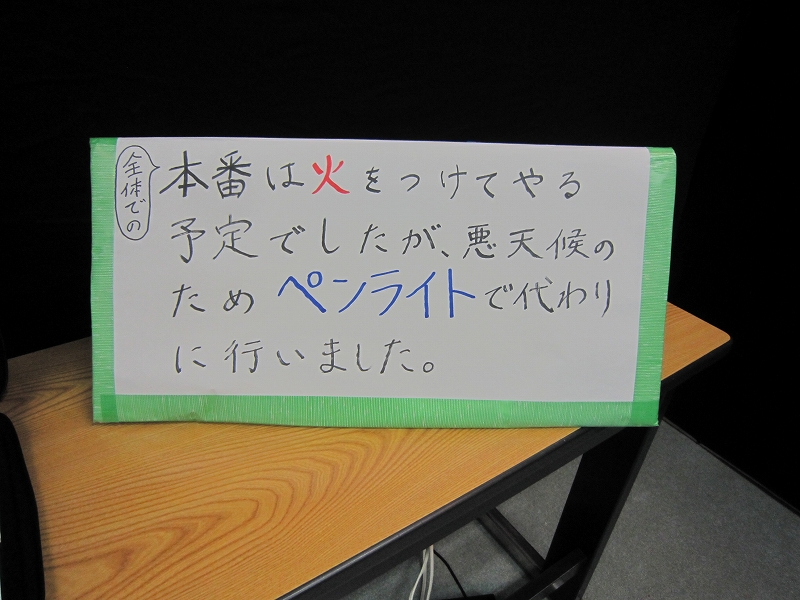 全体での
本番は火をつけてやる
予定でしたが、悪天候の
ためペンライトで代わり
に行いました。